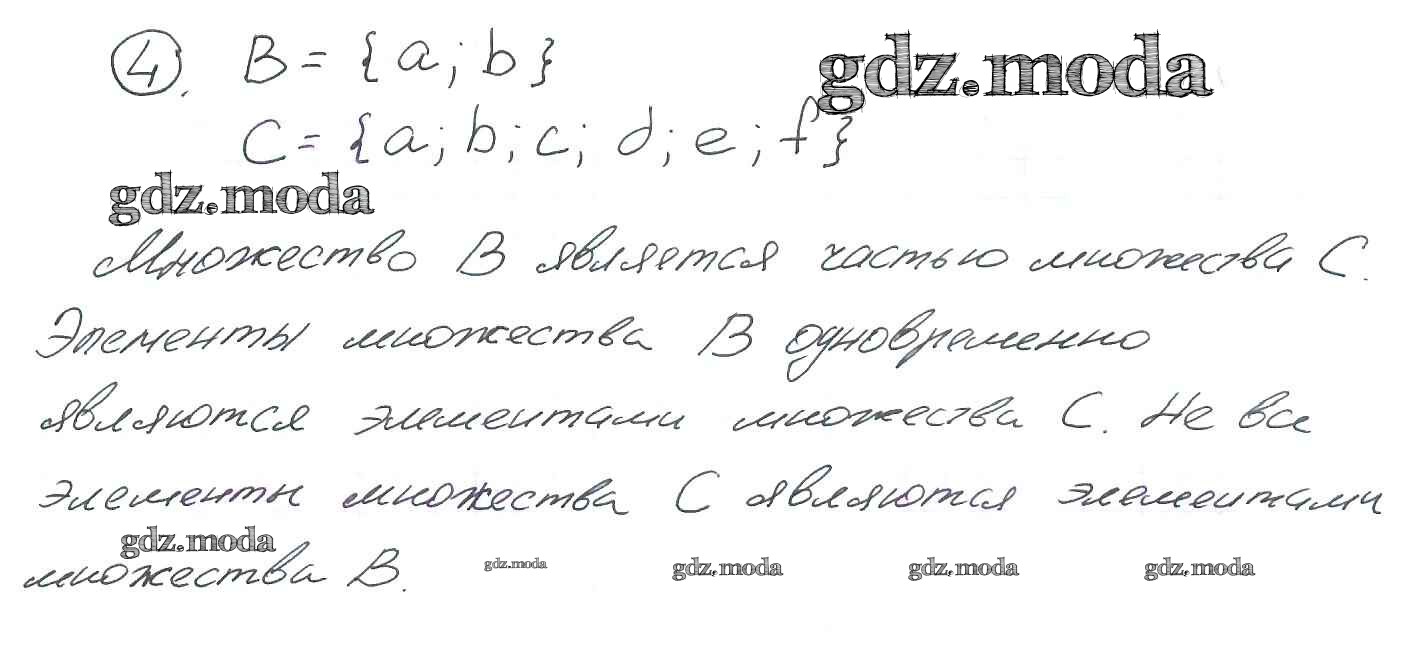 4. B = {a; b}
gdz.moda
C = {a; b; c; d; e; f}
gdz.moda
Множество B является частью множества C.
Элементы множества B одновременно
являются элементами множества C. Не все
элементы множества C являются элементами
gdz.moda
множества B.
gdz.moda gdz.moda gdz.moda gdz.moda